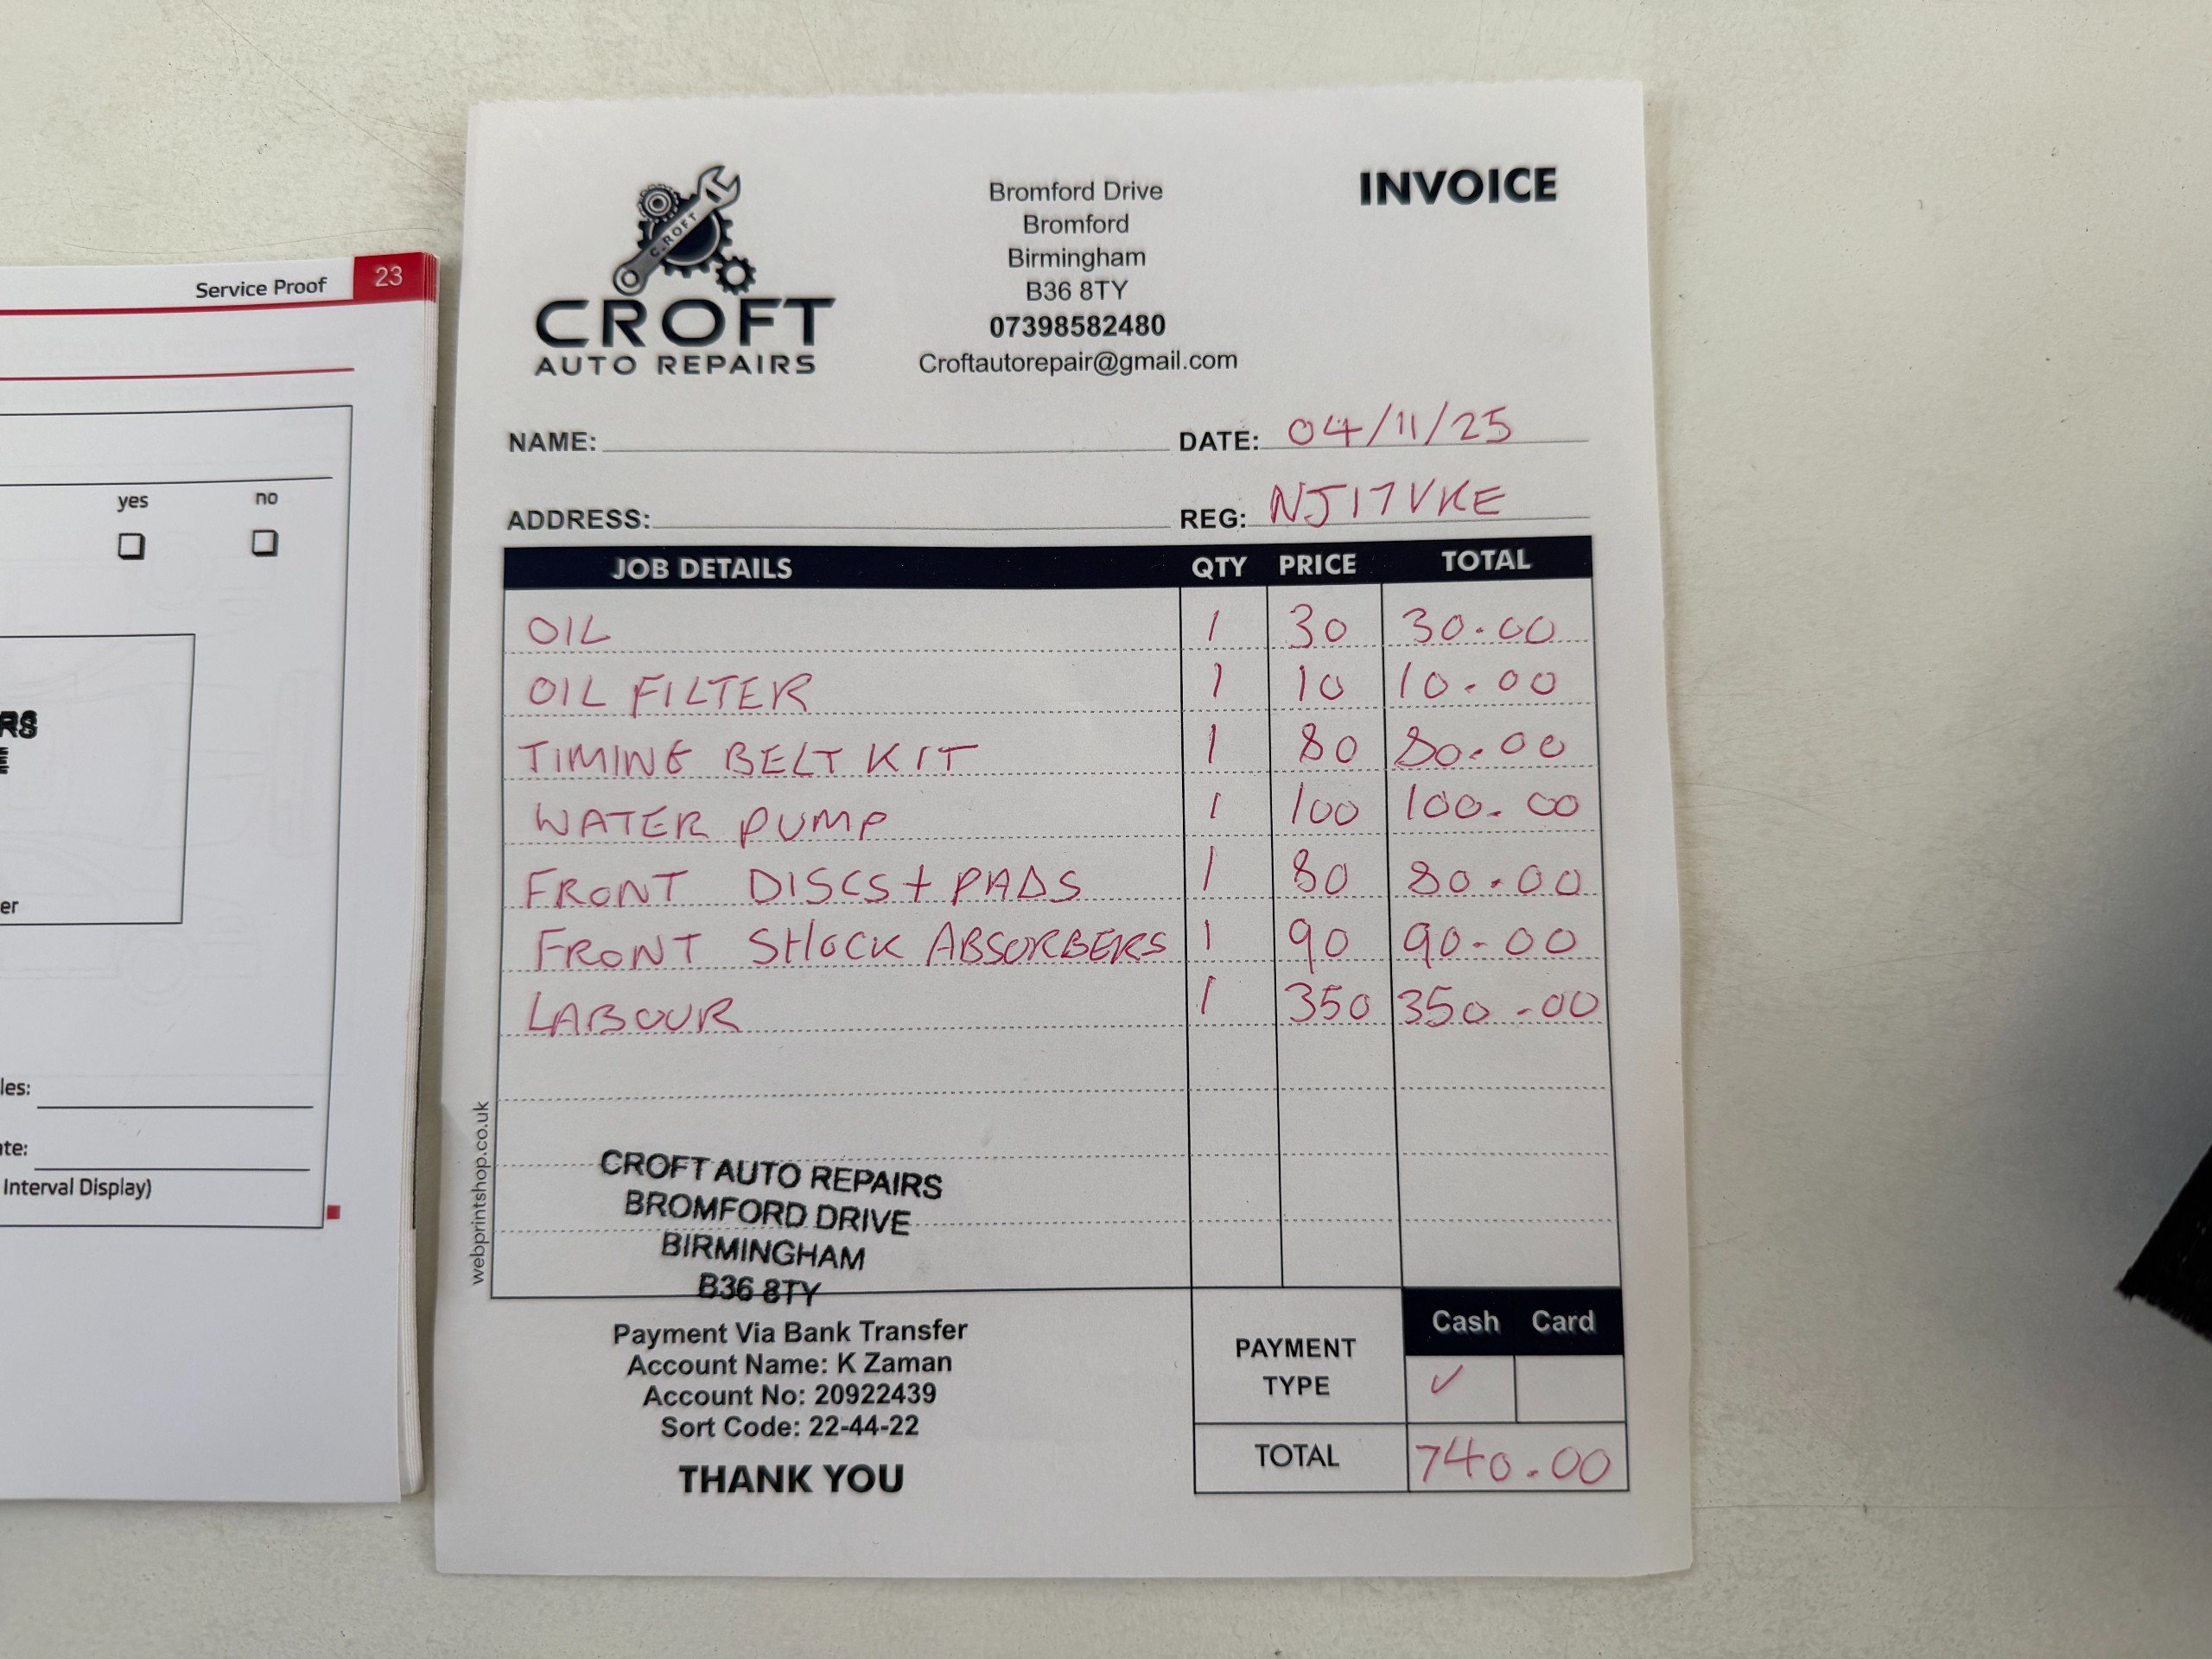 Service Proof 23
yes no
RS
E
er
les:
ate:
Interval Display)
C.ROFT
CROFT
AUTO REPAIRS
Bromford Drive
Bromford
Birmingham
B36 8TY
07398582480
Croftautorepair@gmail.com
INVOICE
NAME: DATE: 04/11/25
ADDRESS: REG: NJ17VKE
JOB DETAILS QTY PRICE TOTAL
OIL 1 30 30.00
OIL FILTER 1 10 10.00
TIMING BELT KIT 1 80 80.00
WATER PUMP 1 100 100.00
FRONT DISCS + PADS 1 80 80.00
FRONT SHOCK ABSORBERS 1 90 90-00
LABOUR 1 350 350-00
webprintshop.co.uk
CROFT AUTO REPAIRS
BROMFORD DRIVE
BIRMINGHAM
B36 8TY
Payment Via Bank Transfer
Account Name: K Zaman
Account No: 20922439
Sort Code: 22-44-22
THANK YOU
PAYMENT TYPE Cash Card
✓
TOTAL 740.00